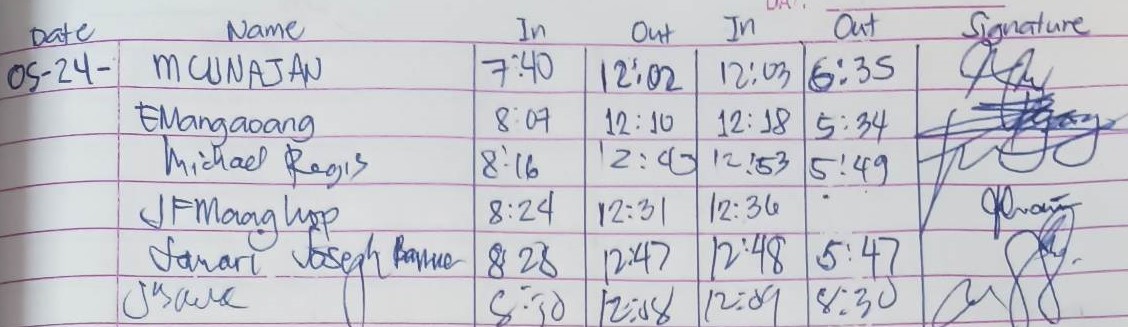 Date Name In Out In Out Signature
05-24- MCUNAJAN 7:40 12:02 12:03 6:35
EMangaoang 8:07 12:10 12:18 5:34
Michael Regis 8:16 12:40 12:53 5:49
JFMaaghop 8:24 12:31 12:36
Joseph 8:28 12:47 12:48 5:47
12:08 12:09 8:30